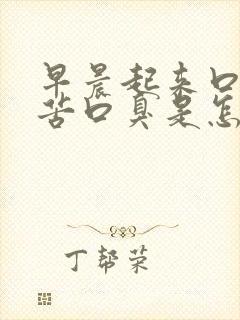 早晨起来口
苦口臭是怎
丁帮荣